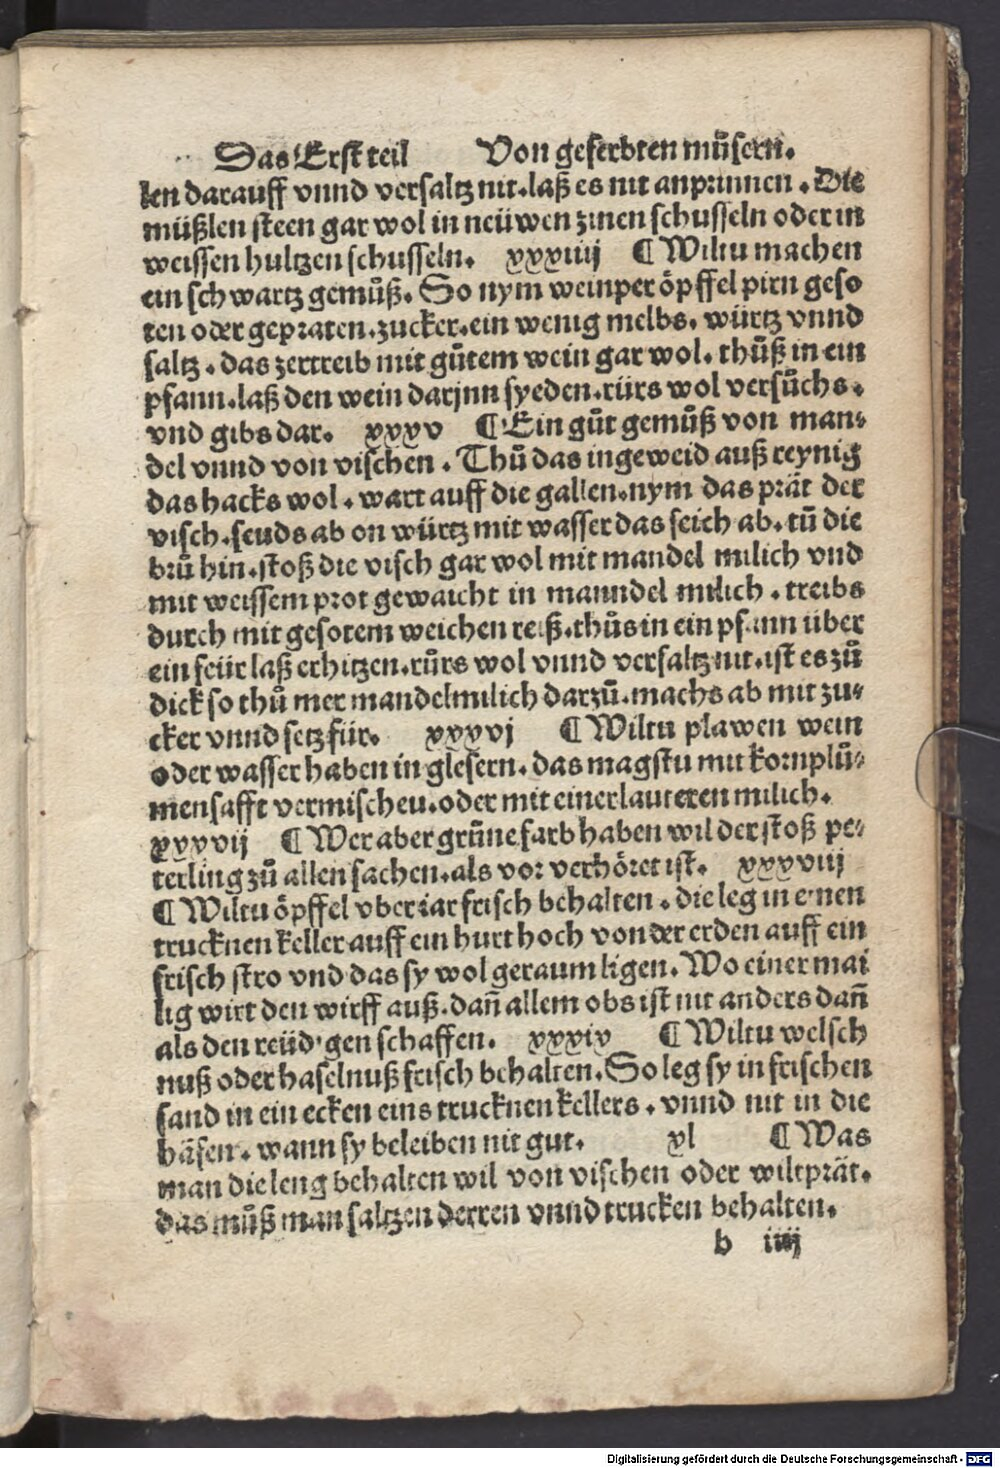 Das Erst teil Von geferbten můsern.
len darauff vnnd versaltz nit. laß es nit anprinnen. Die
müßlen steen gar wol in neüwen zinen schusseln oder in
weissen hultzen schusseln. xxxiiij ¶ Wiltu machen
ein schwartz gemůß. So nym weinper öpffel pirn geso
ten oder gepraten. zucker. ein wenig melbs. würtz vnnd
saltz. das zertreib mit gůtem wein gar wol. thůß in ein
pfann. laß den wein darjnn syeden. rürs wol versůchs.
vnd gibs dar. xxxv ¶ Ein gůt gemůß von man⸗
del vnnd von vischen. Thů das ingeweid auß reynig
das hacks wol. wart auff die gallen. nym das prät der
visch. seuds ab on würtz mit wasser das seich ab. tů die
brů hin. stoß die visch gar wol mit mandel milich vnd
mit weissem prot gewaicht in manndel milich. treibs
durch mit gesotem weichen reiß. thůs in ein pfann über
ein feür laß erhitzen. růrs wol vnnd versaltz nit. ist es zů
dick so thů mer mandelmilich darzů. machs ab mit zu⸗
cker vnnd setz für. xxxvj ¶ Wiltu plawen wein
oder wasser haben in glesern. das magstu mit kornplů⸗
mensafft vermischeu. oder mit einer lauteren milich.
xxxvij ¶ Wer aber grůne farb haben wil der stoß pe⸗
terling zů allen sachen. als vor verhöret ist. xxxviij
¶ Wiltu öpffel vber iar frisch behalten. die leg in einen
trucknen keller auff ein hurt hoch von der erden auff ein
frisch stro vnd das sy wol geraum ligen. Wo einer mai
lig wirt den wirff auß. dañ allem obs ist nit anders dañ
als den reüdigen schaffen. xxxix ¶ Wiltu welsch
nuß oder haselnuß frisch behalten. So leg sy in frischen
sand in ein ecken eins trucknen kellers. vnnd nit in die
häfen. wann sy beleiben nit gut. xl ¶ Was
man die leng behalten wil von vischen oder wiltprät.
das můß man saltzen derren vnnd trucken behalten.
b iiij
Digitalisierung gefördert durch die Deutsche Forschungsgemeinschaft - DFG